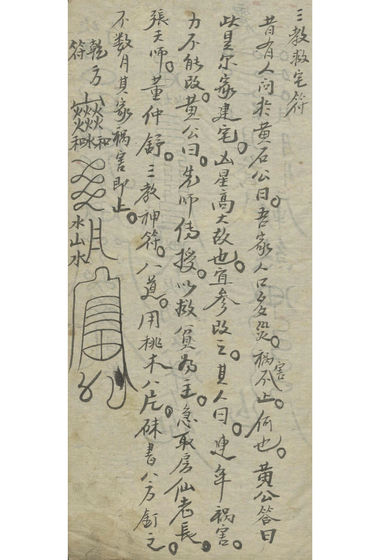 三教救宅符
昔有人问於黄石公曰。吾家人口多災。祸害不止何也。黄公答曰
此是尔家建宅。凶星高大故也宜参改之其人曰。连年祸害。
力不能改。黄公曰。先师传授以救貧为主。急取房仙老長。
張天师。董仲舒。三教神符。八道。用桃木八片硃書八方釘之。
不数月其家祸害即止。
乾方符
水山水